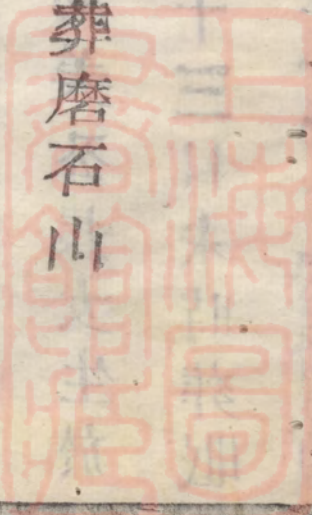 葬磨石山
上海圖
書館藏